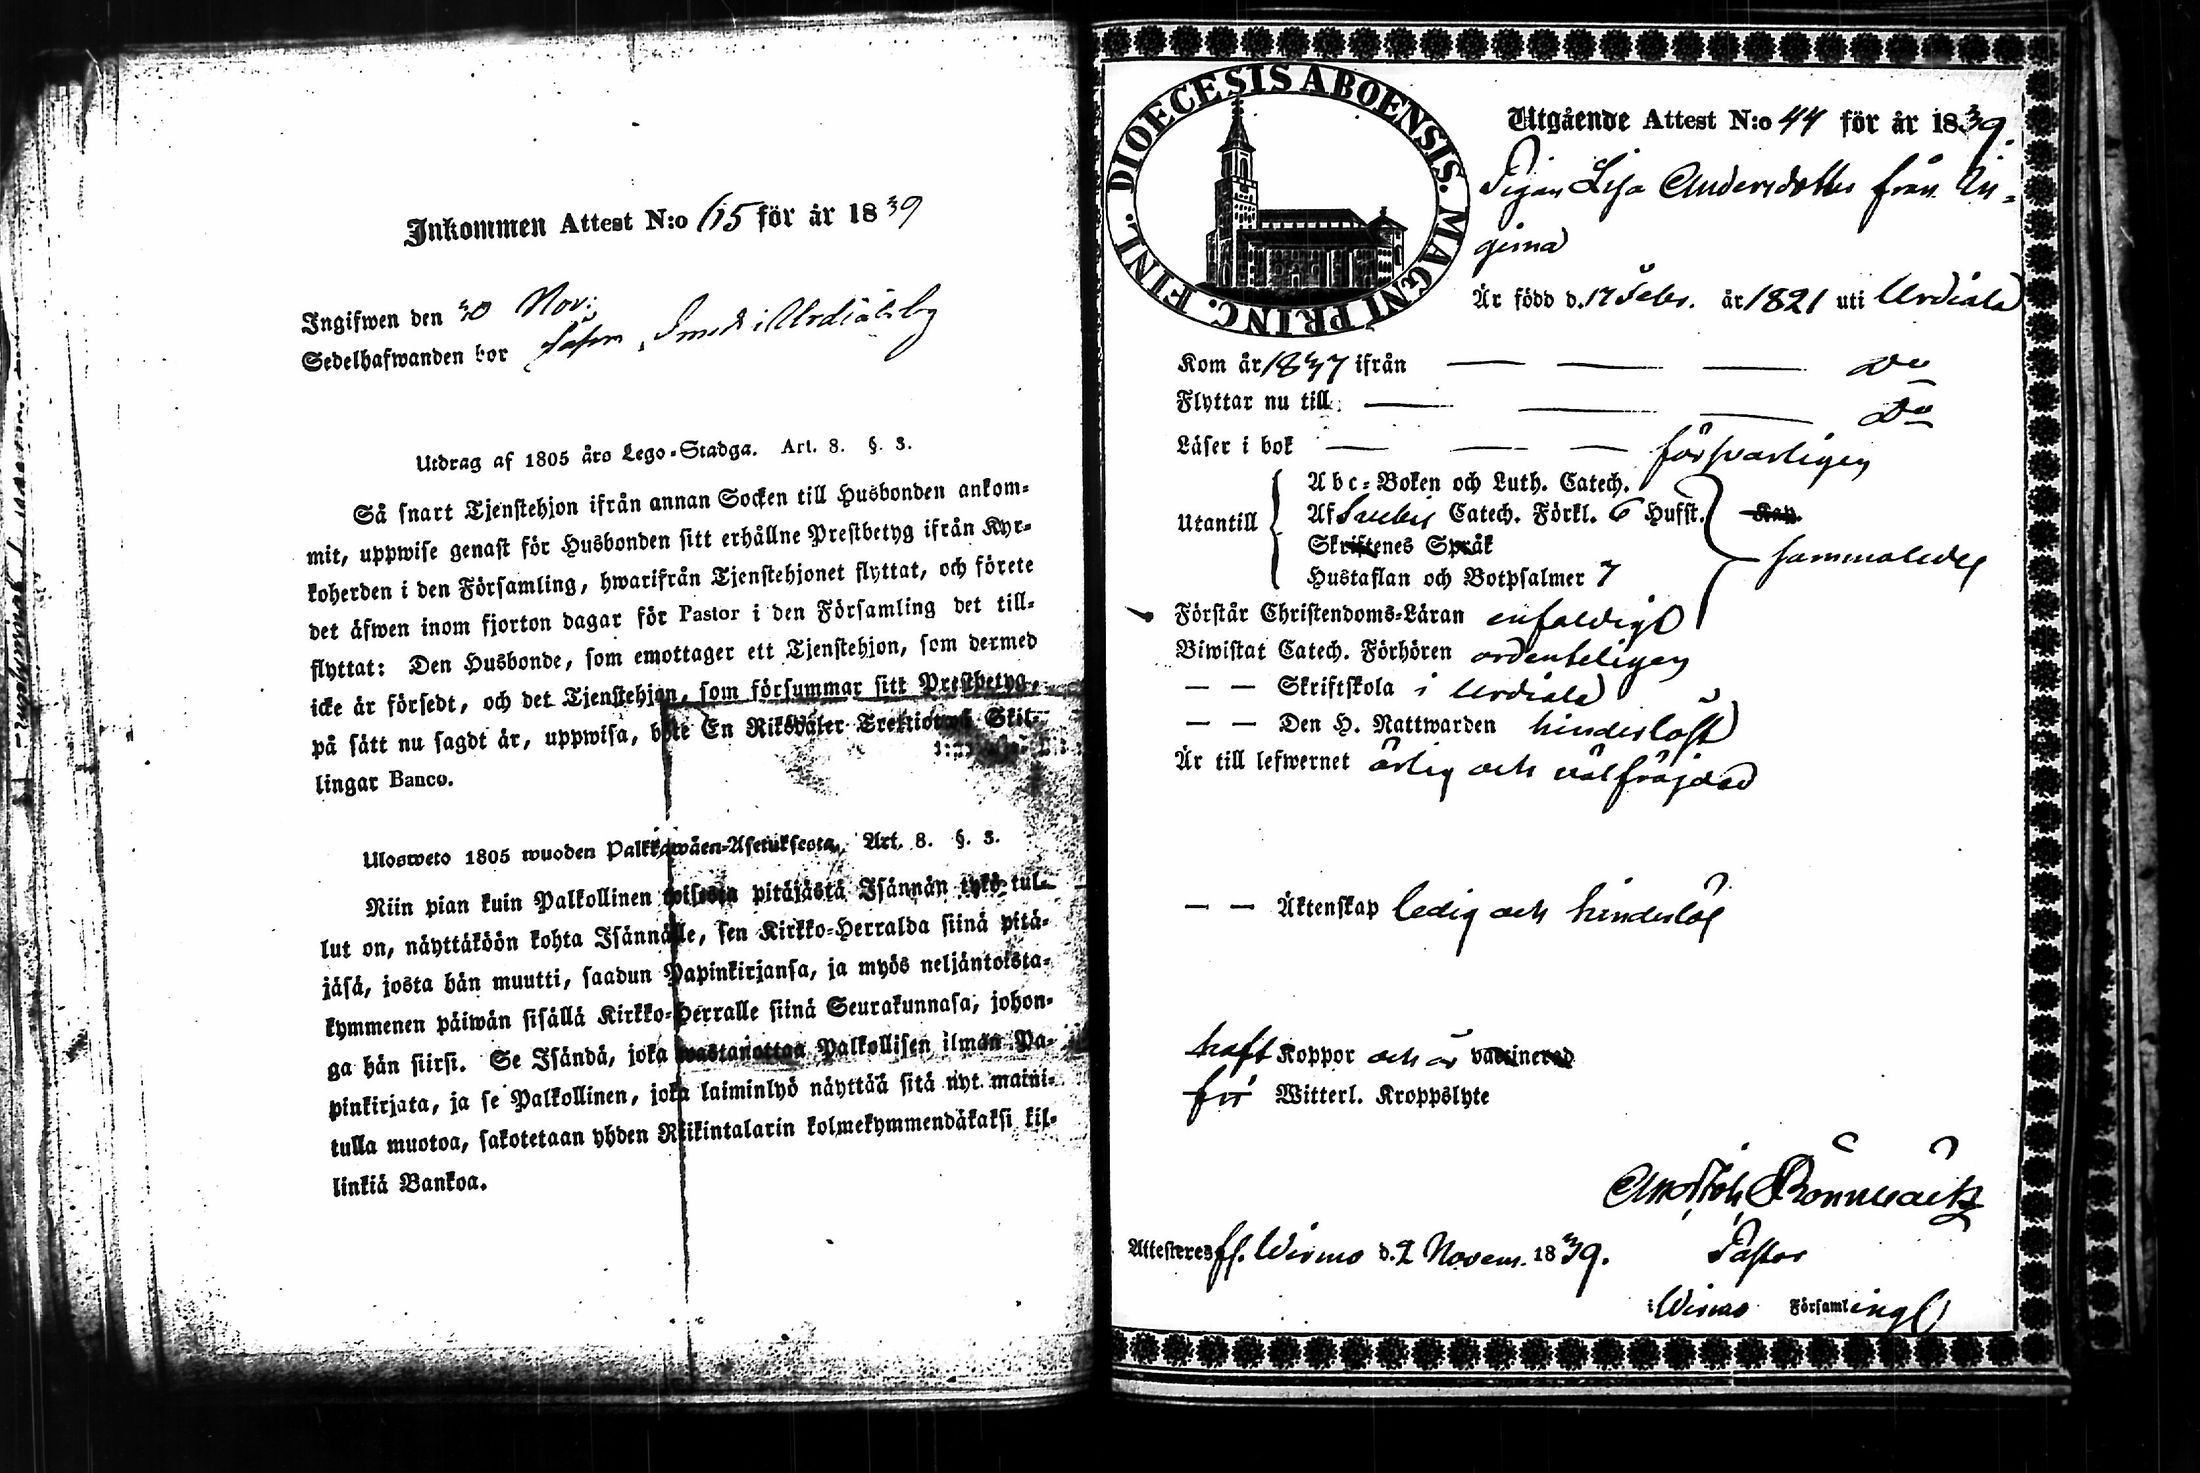 Inkommen Attest N:o 115 för år 1839
Ingifwen den 30 Nov:
Sedelhafwanden bor i Urdiala by
Utdrag af 1805 års Lego-Stadga. Art. 8. §. 3.
Så snart Tjenstehjon ifrån annan Socken till Husbonden ankom-
mit, uppwise genast för Husbonden sitt erhållne Prestbetyg ifrån Kyr-
koherden i den Församling, hwarifrån Tjenstehjonet flyttat, och förete
det äfwen inom fjorton dagar för Pastor i den Församling det till-
flyttat: Den Husbonde, som emottager ett Tjenstehjon, som dermed
icke är försedt, och det Tjenstehjon, som försummar sitt Prestbetyg,
på sätt nu sagdt är, uppwisa, böte En Riksdaler Trettiotwå Skil-
lingar Banco.
Ulosweto 1805 wuoden Palkkawäen-Asetuksesta. Art. 8. §. 3.
Niin pian kuin Palkollinen toisesta pitäjästä Isännän tykö tul-
lut on, näyttäköön kohta Isännälle, sen Kirkko-Herralda siinä pitä-
jäsä, josta hän muutti, saadun Papinkirjansa, ja myös neljäntoista-
kymmenen päiwän sisällä Kirkko-Herralle siinä Seurakunnasa, johon-
ga hän siirsi. Se Isändä, joka wastanottaa Palkollisen ilman Pa-
pinkirjata, ja se Palkollinen, joka laiminlyö näyttää sitä nyt maini-
tulla muotoa, sakotetaan yhden Riikintalarin kolmekymmendäkaksi kil-
linkiä Bankoa.
DIOECESIS ABOENSIS. MAGNI PRINC. FINL.
Utgående Attest N:o 44 för år 1839.
Pigan Lisa Andersdotter från An-
gema
Är född d. 17 Febr. år 1821 uti Urdiala
Kom år 1837 ifrån — — — Do
Flyttar nu till — — — Do
Läser i bok — — — försvarligen
Utantill
Abc-Boken och Luth. Catech.
Af Svebis Catech. Förkl. 6 Hufst. Kap.
Skriftenes Språk
Hustaflan och Botpsalmer 7
sammaledes
Förstår Christendoms-Läran enfaldigt
Biwistat Catech. Förhören ordenteligen
— — Skriftskola i Urdiala
— — Den H. Nattwarden hinderlöst
Är till lefwernet ärlig och välfräjdad
— — Äktenskap ledig och hinderlös
haft Koppor och är vaccinerad
för Witterl. Kroppslyte
Rönnbäck
Attesteres ff. Wirmo d. 2 Novem. 1839. Pastor
i Wirmo Församling